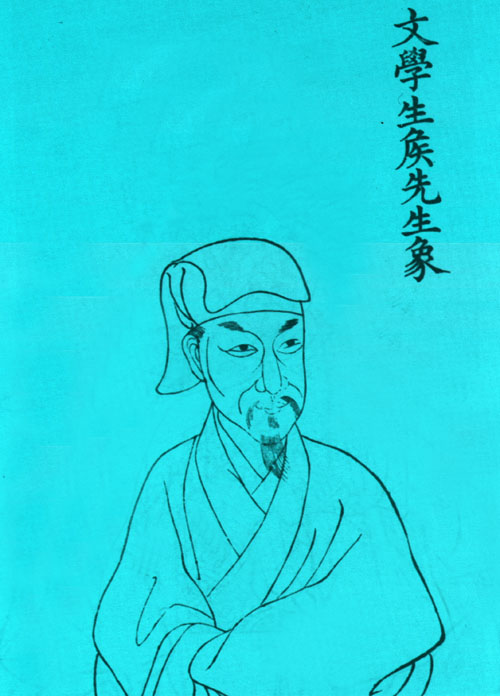 文學生侯先生象